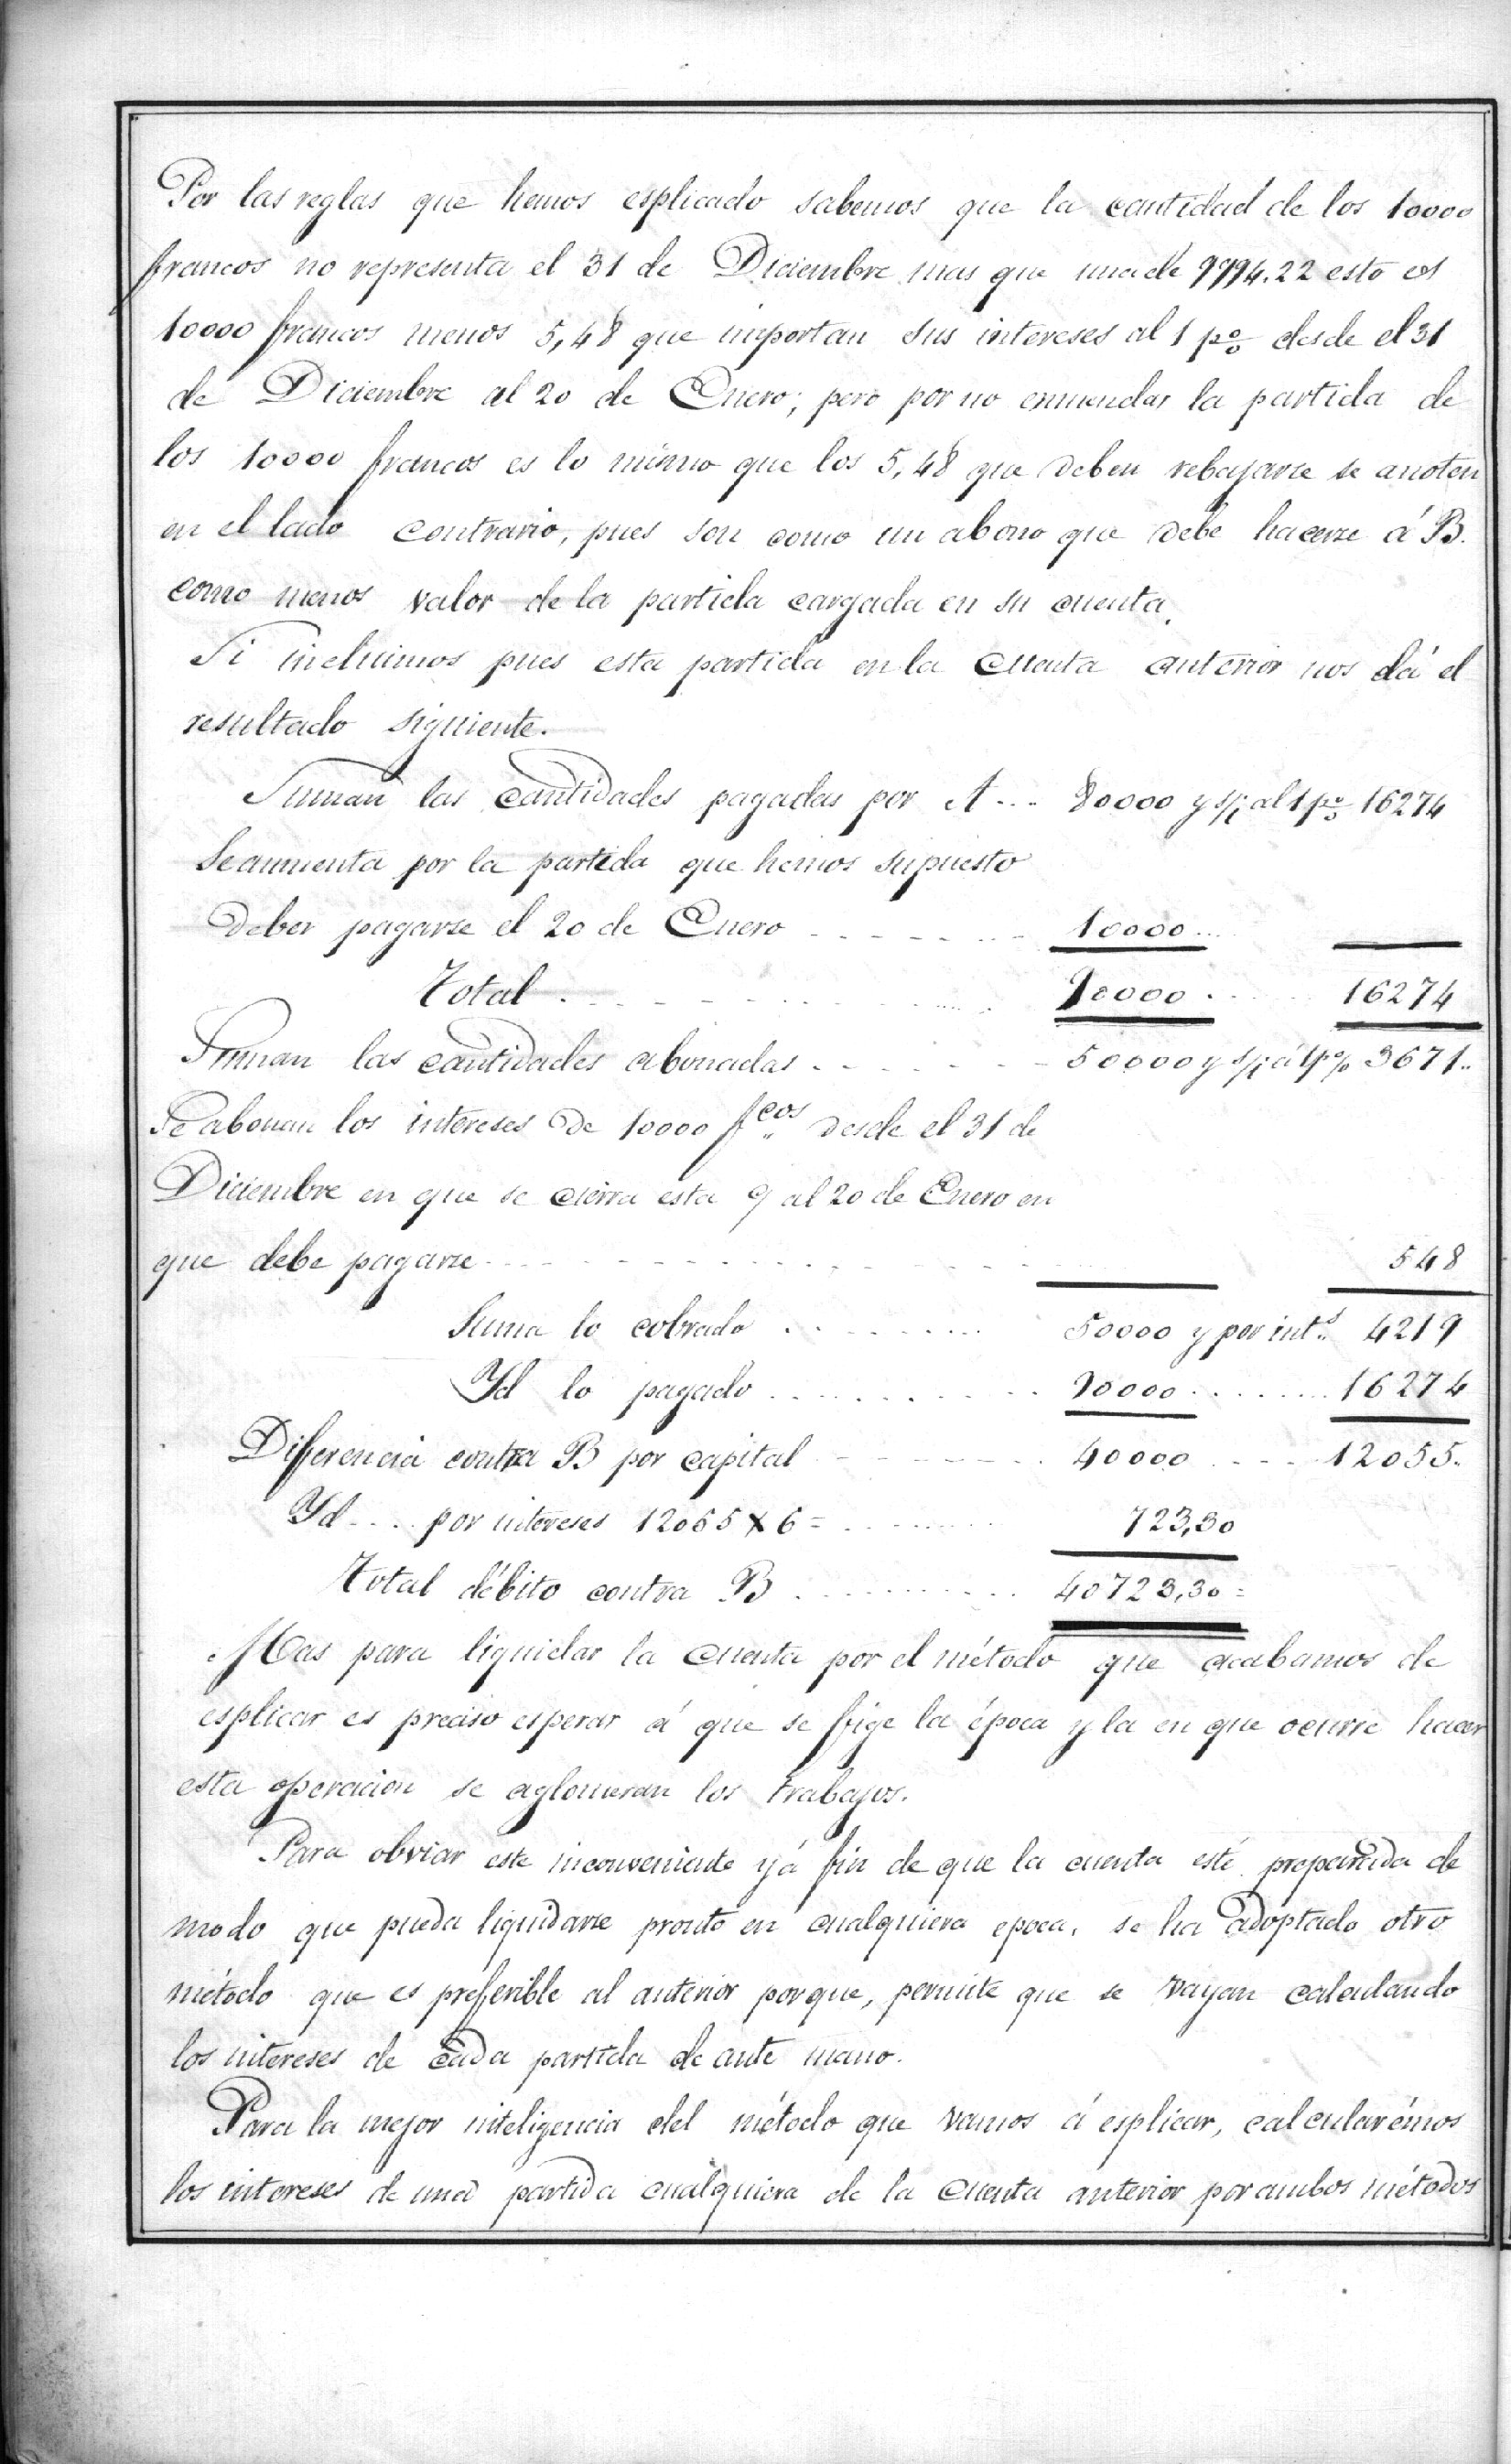 Por las reglas que hemos esplicado sabemos que la cantidad de los 10000
francos no representa el 31 de Diciembre mas que una de 9994.22 esto es
10000 francos menos 5,48 que importan sus intereses al 1 p% desde el 31
de Diciembre al 20 de Enero; pero por no enmendar la partida de
los 10000 francos es lo mismo que los 5,48 que deben rebajarse se anoten
en el lado contrario, pues son como un abono que debe hacerse á B.
como menos valor de la partida cargada en su cuenta.
Si incluimos pues esta partida en la cuenta anterior nos dá el
resultado siguiente.
Suman las cantidades pagadas por A... 80000 y s/i al 1 p% 16274
Se aumenta por la partida que hemos supuesto
deber pagarse el 20 de Enero 10000
Total 90000 16274
Suman las cantidades abonadas 50000 y s/i á 1 p% 3671
Se abonan los intereses de 10000 fcos desde el 31 de
Diciembre en que se cierra esta c/ al 20 de Enero en
que debe pagarse 548
Suma lo cobrado 50000 y por ints 4219
Yd lo pagado 90000 16274
Diferencia contra B por capital 40000 12055
Yd .... por intereses 12055 x 6 = 723,30
Total débito contra B 40723,30 =
Mas para liquidar la cuenta por el método que acabamos de
esplicar es preciso esperar á que se fige la época y la en que ocurre hacer
esta operacion se aglomeran los trabajos.
Para obviar este inconveniente y á fin de que la cuenta esté preparada de
modo que pueda liquidarse pronto en cualquiera epoca, se ha adoptado otro
método que es preferible al anterior porque, permite que se vayan calculando
los intereses de cada partida de ante mano.
Para la mejor inteligencia del método que vamos á esplicar, calcularémos
los intereses de una partida cualquiera de la cuenta anterior por ambos métodos